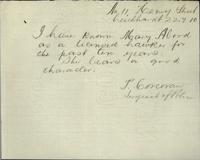 No 11 Henry Street
Leichhardt 22.7.10
I have known Mary Abood
as a licensed hawker for
the past ten years.
She bears a good
character.
T. Corcoran
Sergeant of Police